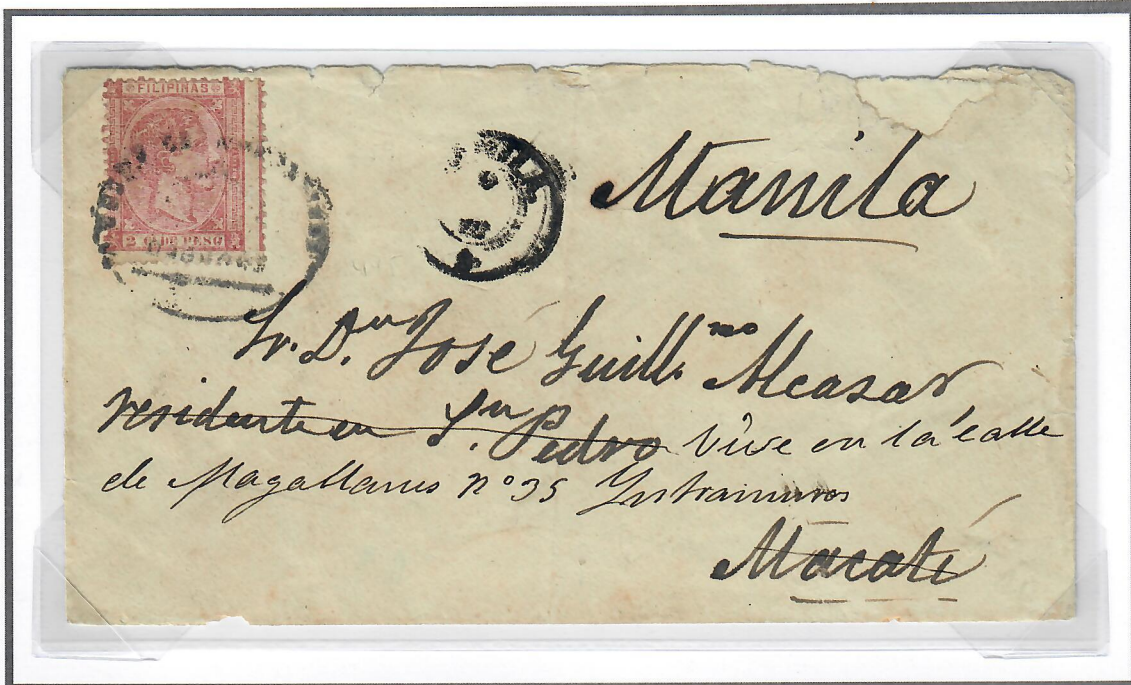 FILIPINAS
2 C. DE PESO
Manila
Sr. Dn José Guillmo Alcasar
residente en Sn. Pedro Vive en la calle
de Magallanes nº 35 Yntramuros
Macati